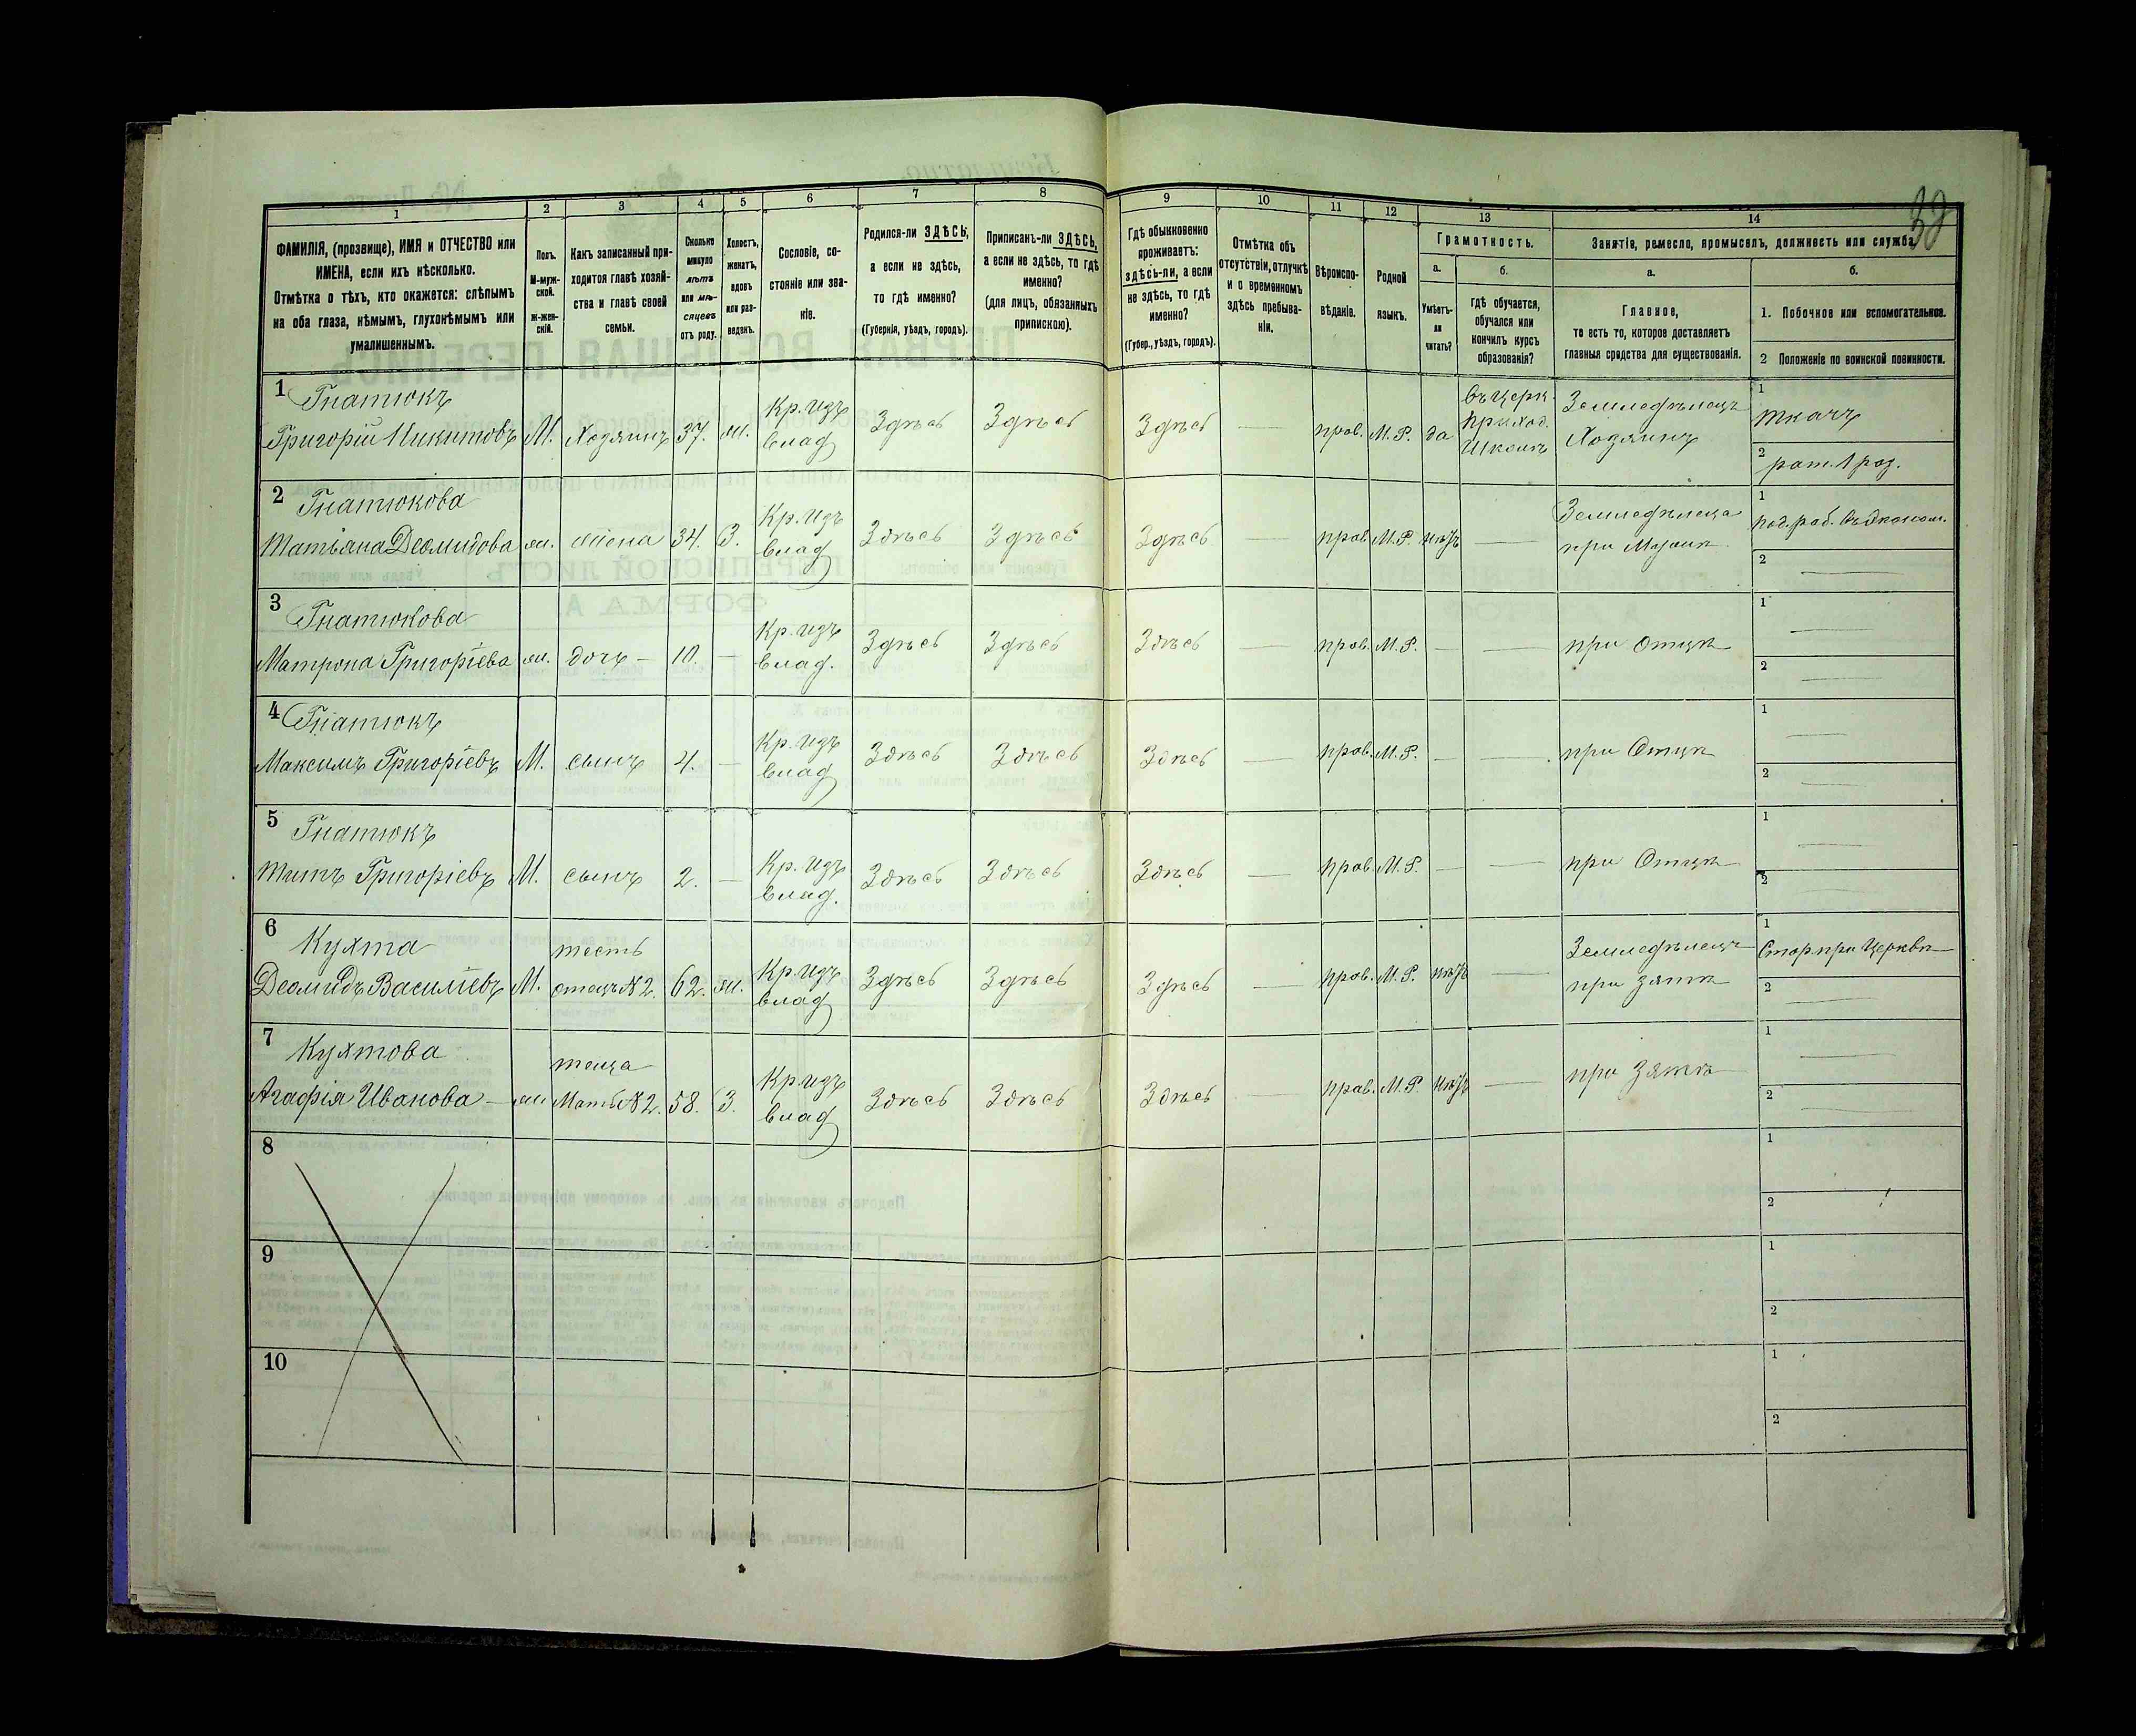 39
1 2 3 4 5 6 7 8 9 10 11 12 13 14
ФАМИЛІЯ, (прозвище), ИМЯ и ОТЧЕСТВО или
ИМЕНА, если ихъ нѣсколько.
Отмѣтка о тѣхъ, кто окажется: слѣпымъ
на оба глаза, нѣмымъ, глухонѣмымъ или
умалишеннымъ.
Полъ.
М-муж-
ской.
ж-жен-
скій.
Какъ записанный при-
ходится главѣ хозяй-
ства и главѣ своей
семьи.
Сколько
минуло
лѣтъ
или мѣ-
сяцевъ
отъ роду.
Холостъ,
женатъ,
вдовъ
или раз-
веденъ.
Сословіе, со-
стояніе или зва-
ніе.
Родился-ли ЗДѢСЬ,
а если не здѣсь,
то гдѣ именно?
(Губернія, уѣздъ, городъ).
Приписанъ-ли ЗДѢСЬ,
а если не здѣсь, то гдѣ
именно?
(для лицъ, обязанныхъ
припискою).
Гдѣ обыкновенно
проживаетъ:
здѣсь-ли, а если
не здѣсь, то гдѣ
именно?
(Губер., уѣздъ, городъ).
Отмѣтка объ
отсутствіи, отлучкѣ
и о временномъ
здѣсь пребыва-
ніи.
Вѣроиспо-
вѣданіе.
Родной
языкъ.
Грамотность.
а.
Умѣетъ-
ли
читать?
б.
гдѣ обучается,
обучался или
кончилъ курсъ
образованія?
Занятіе, ремесло, промыселъ, должность или служба.
а.
Главное,
то есть то, которое доставляетъ
главныя средства для существованія.
б.
1. Побочное или вспомогательное.
2 Положеніе по воинской повинности.
1 Гнатюкъ Кр. изъ въ Церк. Земледѣлецъ 1 ткачъ
Григорій Никитовъ М. Хозяинъ 37. ж. влад Здѣсь Здѣсь Здѣсь — прав. М.Р. да приход. Хозяинъ
Школѣ 2 рат. 1 раз.
2 Гнатюкова Кр. изъ Земледѣлица 1 под. раб. въ эконом.
Татьяна Деомидова ж. жена 34. З. влад Здѣсь Здѣсь Здѣсь — прав. М.Р. нѣтъ — при Мужѣ 2 —
3 Гнатюкова Кр. изъ 1 —
Матрона Григоріева ж. дочь — 10. — влад. Здѣсь Здѣсь Здѣсь — прав. М.Р. — — при Отцѣ 2 —
4 Гнатюкъ Кр. изъ 1 —
Максимъ Григоріевъ М. сынъ 4. — влад Здѣсь Здѣсь Здѣсь — прав. М.Р. — — при Отцѣ 2 —
5 Гнатюкъ Кр. изъ 1 —
Титъ Григоріевъ М. сынъ 2. — влад. Здѣсь Здѣсь Здѣсь — прав. М.Р. — — при Отцѣ 2 —
6 Кухта тесть Кр. изъ Земледѣлецъ 1 Стор. при Церкви
Деомидъ Василіевъ М. отецъ N 2. 62. ж. влад Здѣсь Здѣсь Здѣсь — прав. М.Р. нѣтъ — при зятѣ 2 —
7 Кухтова теща Кр. изъ 1 —
Агафія Иванова — ж. Мать N 2. 58. З. влад Здѣсь Здѣсь Здѣсь — прав. М.Р. нѣтъ — при Зятѣ 2 —
8 1
2
9 1
2
10 1
2